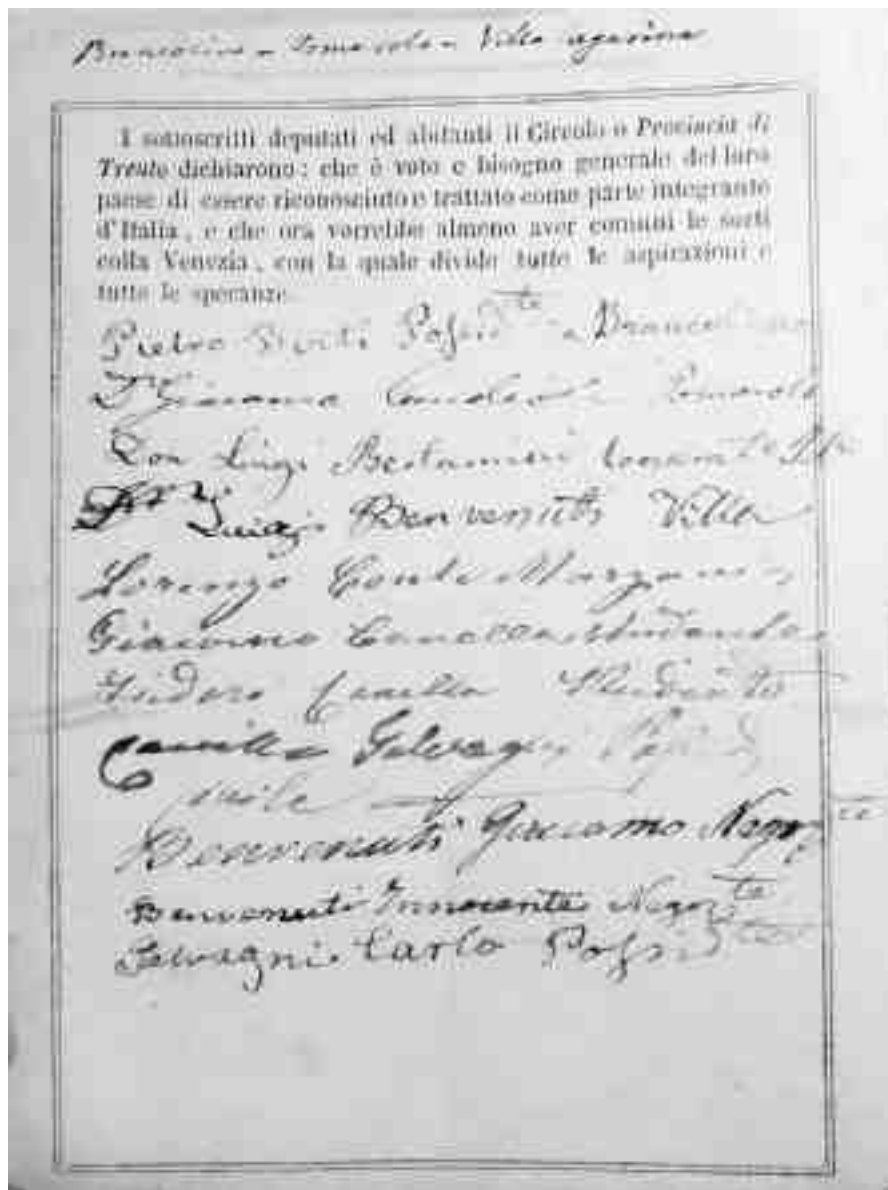 Brancolino - Pomarolo - Villa Lagarina
I sottoscritti deputati ed abitanti il Circolo o Provincia di
Trento dichiarono: che è voto e bisogno generale del loro
paese di essere riconosciuto e trattato come parte integrante
d'Italia, e che ora vorrebbe almeno aver comuni le sorti
colla Venezia, con la quale divide tutte le aspirazioni e
tutte le speranze.
Pietro Possid.te a Brancolino
Giacomo Pomarolo
Don Luigi
Luigi Benvenuti Villa
Lorenzo Conte Marzani
Giacomo Canella studente
Isidoro Canella Studente
Camillo Galvagni Possid
Benvenuti Giacomo Negoz.te
Benvenuti Innocente Negoz.te
Galvagni Carlo Possid